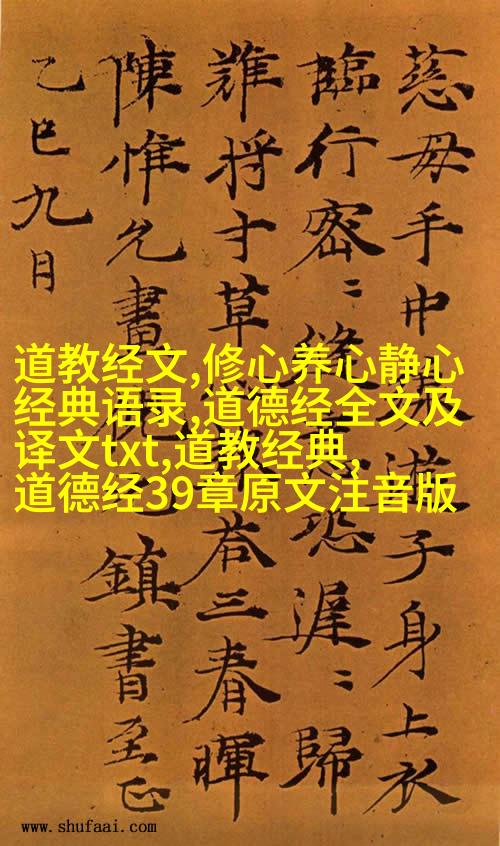 慈母手中遊子身上衣
臨行密〻縫恐遲〻歸
難将寸草荅三春暉
陳惟允書鎮書至正
乙巳九月
道教经文,修心养心静心
经典语录,道德经全文及
译文txt,道教经典,
道德经39章原文注音版
www.shufaai.com